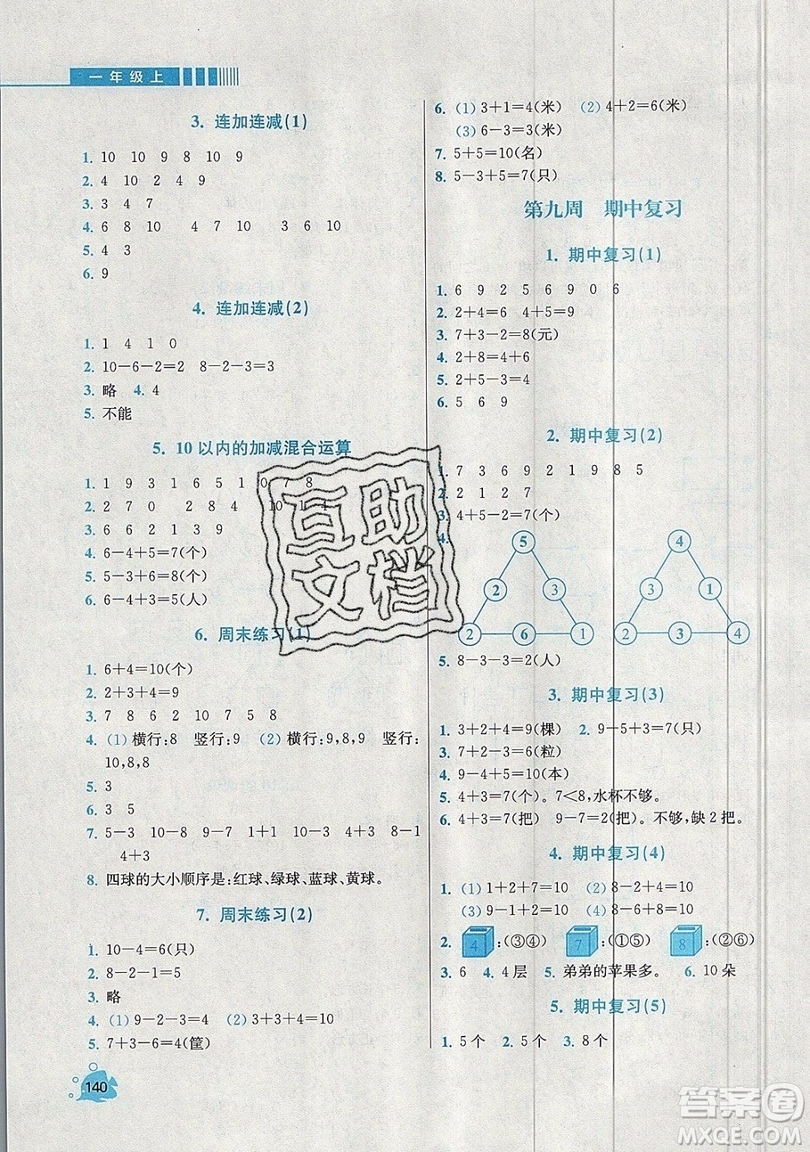 一年级上
3. 连加连减(1)
1. 10 10 9 8 10 9
2. 4 10 2 4 9
3. 3 4 7
4. 6 8 10 4 7 10 3 6 10
5. 4 3
6. 9
4. 连加连减(2)
1. 1 4 1 0
2. 10－6－2＝2 8－2－3＝3
3. 略 4. 4
5. 不能
5. 10以内的加减混合运算
1. 1 9 3 1 6 5 1 0 7 8
2. 2 7 0 2 8 4
3. 6 6 2 1 3 9
4. 6－4＋5＝7(个)
5. 5－3＋6＝8(个)
6. 6－2＋1＝5(人)
6. 周末练习(1)
1. 6＋4＝10(个)
2. 2＋3＋4＝9
3. 7 8 6 2 10 8 8 7
4. (1) 横行:8 竖行:9 (2) 横行:9,8,9 竖行:
10,8,8
5. 3
6. 3 5
7. 5－3 10－8 9－7 1＋1 10－3 4＋3 8－1
4＋3
8. 四球的大小顺序是:红球、绿球、蓝球、黄球。
7. 周末练习(2)
1. 10－4＝6(只)
2. 8－2－1＝5
3. 略
4. (1) 9－2－3＝4 (2) 3＋3＋4＝10
5. 7＋3－6＝4(筐)
140
6. (1) 3＋1＝4(米) (2) 4＋2＝6(米)
(3) 6－3＝3(米)
7. 5＋5＝10(名)
8. 5－3＋5＝7(只)
第九周 期中复习
1. 期中复习(1)
1. 6 9 2 5 6 9 0 6
2. 2＋4＝6 4＋5＝9
3. 7＋3－2＝8(元)
4. 2＋8＝4＋6
5. 3 6 2 1
6. 5 6 9
2. 期中复习(2)
1. 7 3 6 9 2 1 9 8 5
2. 2 1 2 7
3. 4＋5－2＝7(个)
4.
5 4
2 3 3 1
2 6 1 2 3 4
5. 8－3－3＝2(人)
3. 期中复习(3)
1. 3＋2＋4＝9(棵) 2. 9－5＋3＝7(只)
3. 7＋2－3＝6(粒)
4. 9－4＋5＝10(本)
5. 4＋3＝7(个)。7＜8,水杯不够。
6. 4＋3＝7(把) 9－7＝2(把)。不够,缺2把。
4. 期中复习(4)
1. (1) 1＋2＋7＝10 (2) 8－2＋4＝10
(3) 9－1＋2＝10 (4) 6－0＋4＝10
2. 4:(③④) 7:(①⑤) 8:(②⑥)
3. 6 4. 4层 5. 弟弟的苹果多。 6. 10朵
5. 期中复习(5)
1. 5个 2. 5个 3. 8个
互助
文档
答案圈
MXQE.COM